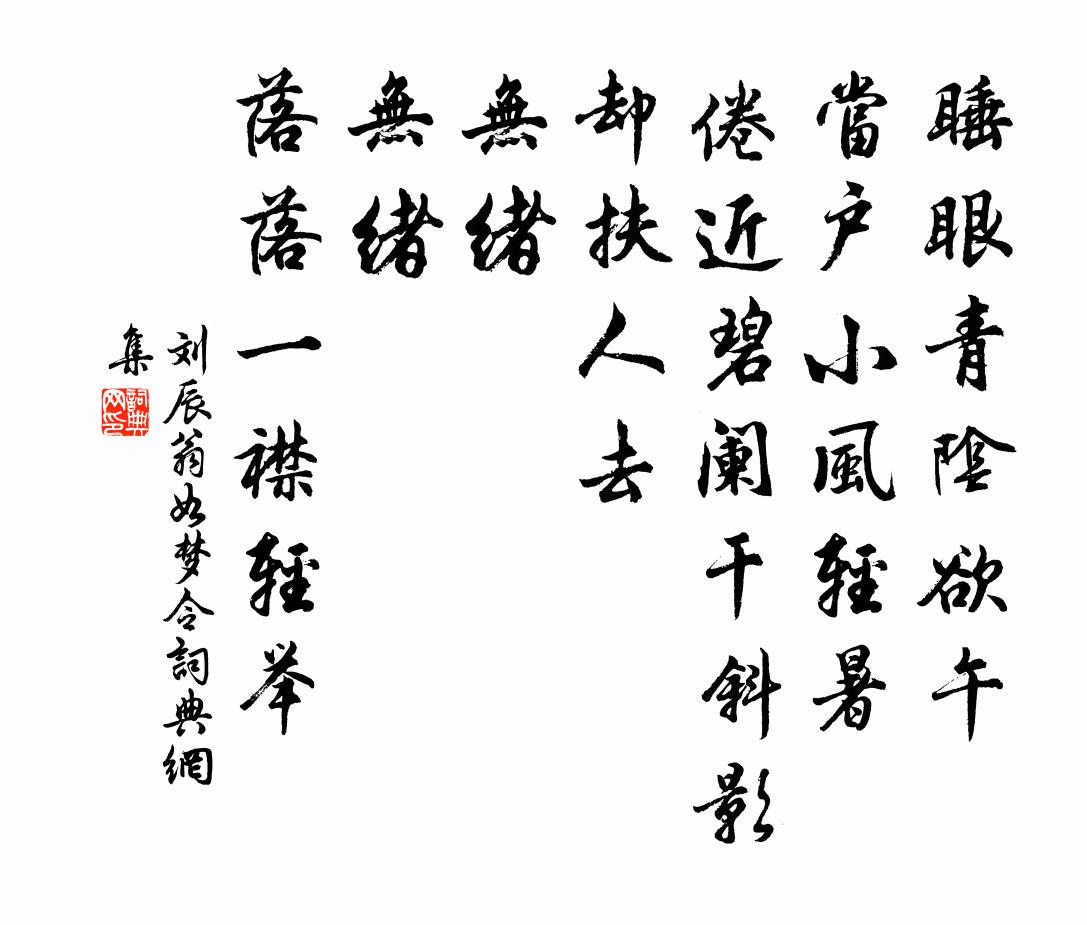 睡眼青陰欲午
當户小風輕暑
倦近碧阑干斜影
却扶人去
無緒
無緒
落落一襟輕举
刘辰翁如梦令詞典網
集
詞典
网印